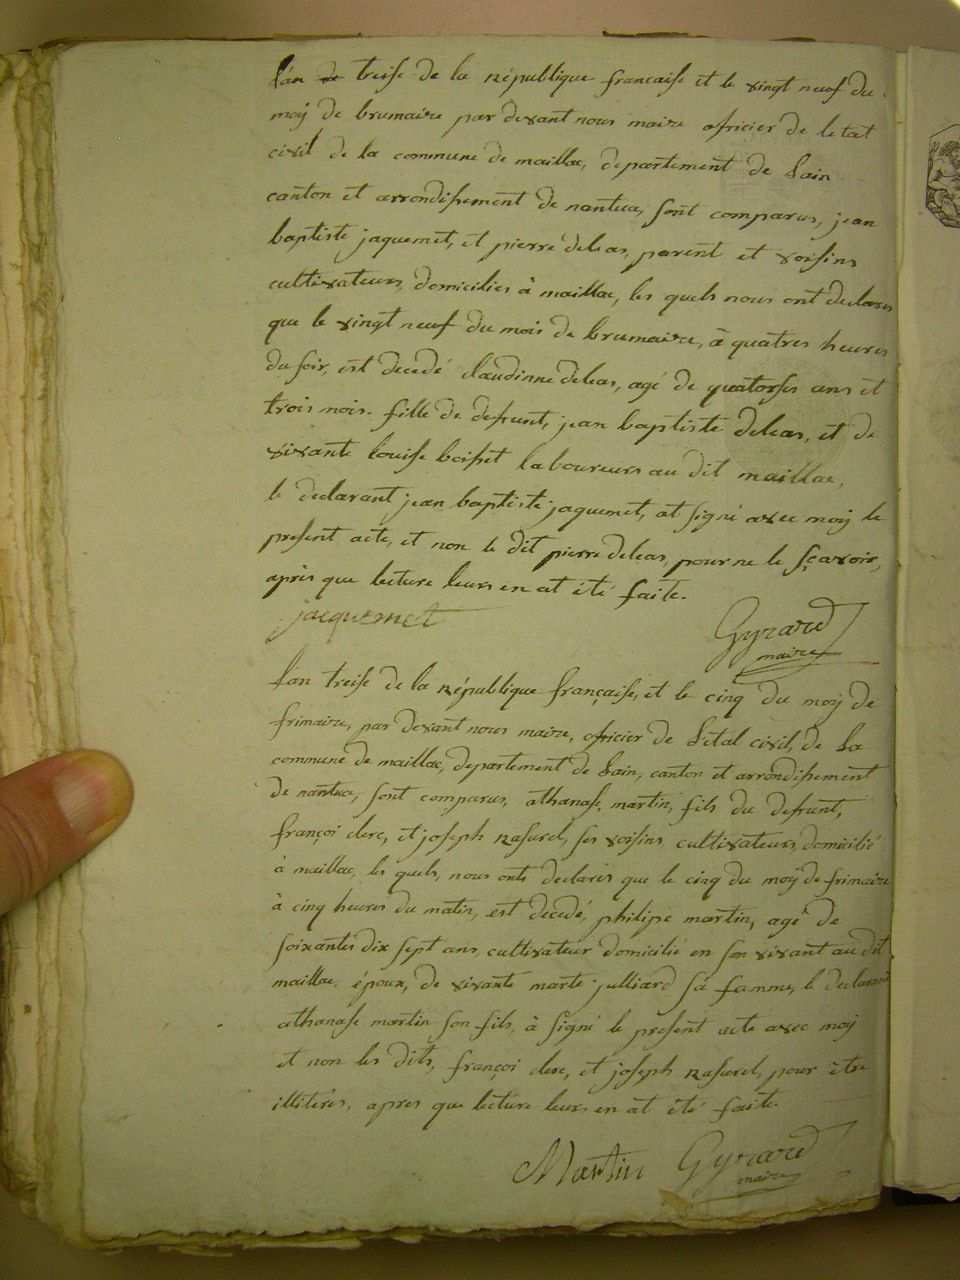 l'an de treise de la république francaise et le vingt neuf du
moij de brumaire par devant nous maire oficier de letat
civil de la commune de maillac, departement de Lain
canton et arrondisement de nantua, sont comparus, jean
baptiste jaquemet, et pierre deleas, parent et voisins
cultivateurs, domicilies à maillac, les quels nous ont declares
que le vingt neuf du mois de brumaire, à quatres heures
du soir, est decedé claudinne deleas, agé de quatorses ans et
trois mois. fille de defrunt, jean baptiste deleas, et de
vivante louise boisset laboureurs au dit maillac,
le declarant jean baptiste jaquemet, at signé avec moij le
present acte, et non le dit pierre deleas, pour ne le sçavoir,
après que lecture leurs en at été faite.
jacquemet Gyrard
maire
l'an treise de la république française, et le cinq du moij de
frimaire, par devant nous maire, oficier de l'etal civil, de La
commune de maillac, departement de Lain, canton et arrondisement
de nantua, sont comparus, athanase, martin, fils du defrunt,
françoi clerc, et joseph rasurel, ses voisins cultivateurs, domicilié
à maillac, les quels, nous onts declarés que le cinq du moij de frimaire
à cinq heures du matin, est decedé, philipe martin, agé de
soixantes dix sept ans, cultivateur domicilié en son vivant au dit
maillac, époux, de vivante marte julliard sa famme, le declarant
athanase martin son fils, à signé le present acte avec moij
et non les dits, françoi clerc, et joseph rasurel, pour être
illiteres, apres que lecture leurs en at été faite.
Martin Gyrard
maire